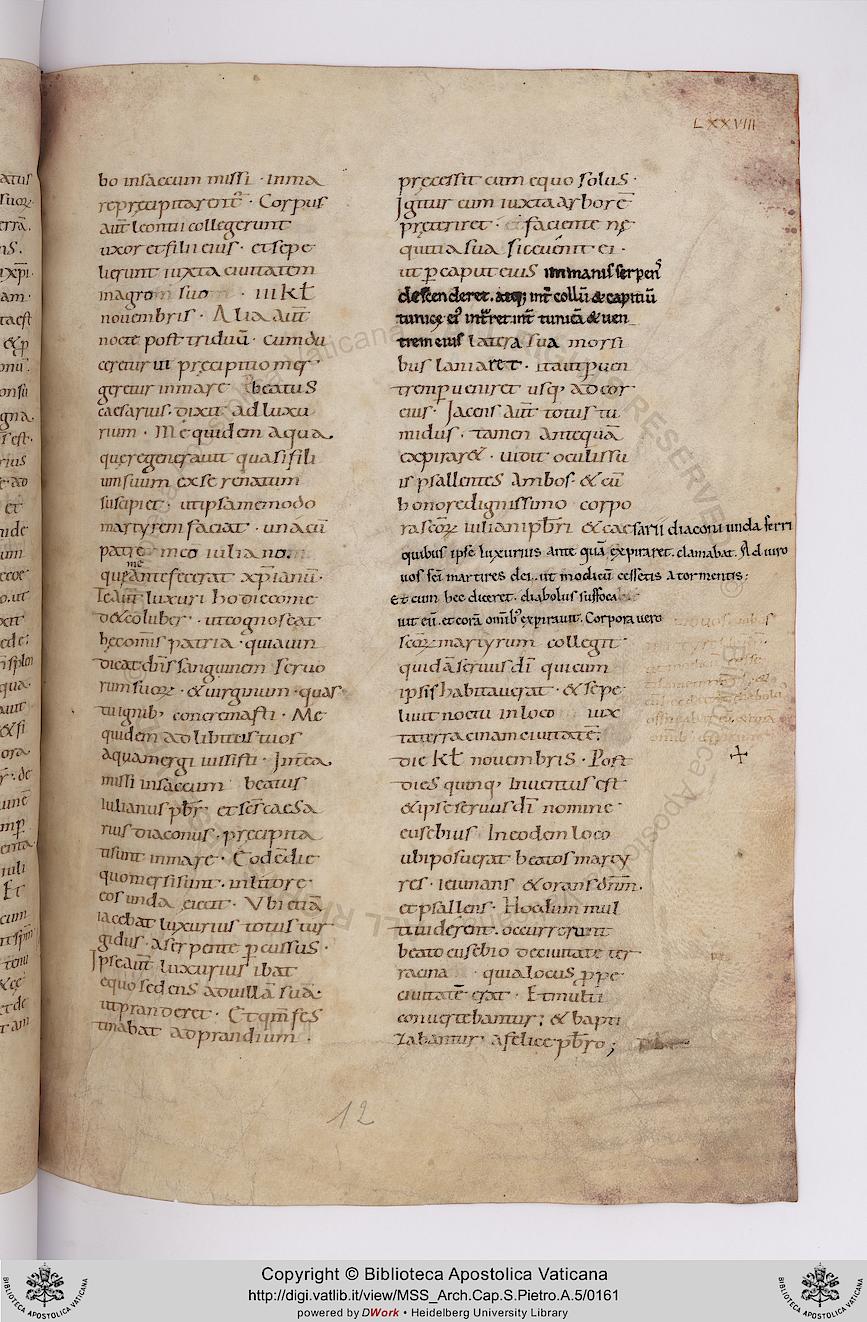 LXXVIII
bo insaccum missi · inma
reprȩcipitarent̄ · Corpus
aut̄ leontii collegerunt
uxor etfilii eius · etsepe
lierunt iuxta ciuitatem
magrom suom · iii kł
nouembris · Alia aut̄
nocte post triduū · cumdu
ceretur ut prȩcipitio mer
geretur inmare · beatus
caesarius · dixit adluxu
rium · Me quidem aqua
quȩ regenerauit quasi fili
um suum exse renatum
suscipiet · utipsa memodo
martyrem faciat · unacū
patre meo iuliano.
me
qui ante fecerat xp̄ianū ·
Te aut̄ luxuri hodie come
det coluber · utcognoscat
hȩcomnis patria · quia uin
dicat dn̄s sanguinem seruo
rum suoꝝ · & uirginum · quas
tu ignib; concremasti · Me
quidem adlibitus tuos
aquamergi iussisti · Interea
missi insaccum beatus
iulianus pb̄r · et sc̄s caesa
rius diaconus · prȩcipita
ti sunt inmare · Eodē die
quo mersi sunt · inlitore
eos unda eiecit · Vbi etiā
iacebat luxurius totus tur
gidus · aserpente ꝑcussus ·
Ipse aut̄ luxurius ibat
equo sedens aduillā suā ·
utpranderet · Et qm̄ fes
tinabat adprandium ·
prȩcessit cum equo solus ·
Igitur cum iuxta arborē
prȩteriret · & faciente nȩ
quitia sua sic euēnit ei ·
ut ꝑ caput eius immanis serpen̄s
descenderet. atq; int̄ collū & capitiū
tunicȩ ei᾽ int̄ret. int̄ tunicā & uen
trem eius latera sua morsi
bus laniaret · ita ut ꝑ uen
trem ꝑueniret usq; ad cor
eius · Iacens aut̄ totus tu
midus · tamen antequā
expirar& · uidit oculis su
is psallentes ambos · & cū
honore dignissimo corpo
ra sc̄oꝝ iuliani pb̄ri & caesarii diaconi unda ferri
quibus ipse luxurius ante quā expiraret. clamabat. Adiuro
uos sc̄i martires dei. ut modicū cessetis a tormentis;
Et cum hec diceret. diabolus suffoca
uit eū. et corā omīb᾽ expirauit. Corpora uero
sc̄oꝝ martyrum collegit
quidā seruus dī qui cum
ipsis habitauerat · & sepe
liuit noctu in loco iux
ta terracinam ciuitatē;
die kł nouembris · Post
dies quinq; Inuentus est
& ipse seruus dī nomine
eusebius In eodem loco
ubi posuerat beatos marty
res · ieiunans & orans dn̄m ·
et psallens · Hoc dum mul
ti uiderent · occurrerunt
beato eusebio deciuitate ter
racina · quia locus ꝓpe
ciuitatē erat · Et multi
conuertebantur; & bapti
zabantur afelice pb̄ro;
12
Copyright © Biblioteca Apostolica Vaticana
http://digi.vatlib.it/view/MSS_Arch.Cap.S.Pietro.A.5/0161
powered by DWork • Heidelberg University Library